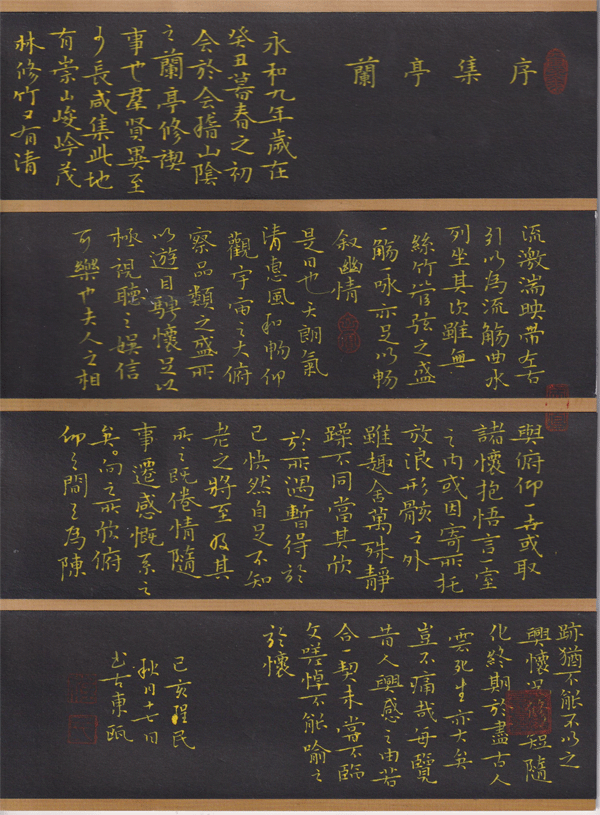 蘭亭集序
永和九年歲在
癸丑暮春之初
会於会稽山陰
之蘭亭修禊
事也羣賢畢至
少長咸集此地
有崇山峻岭茂
林修竹又有清
流激湍映带左右
引以為流觴曲水
列坐其次雖無
絲竹管弦之盛
一觴一咏亦足以暢
叙幽情
是日也天朗氣
清惠風和暢仰
觀宇宙之大俯
察品類之盛所
以遊目騁懷足以
極視聽之娱信
可樂也夫人之相
與俯仰一世或取
諸懷抱悟言一室
之内或因寄所托
放浪形骸之外
雖趣舍萬殊靜
躁不同當其欣
於所遇暫得於
己快然自足不知
老之將至及其
所之既倦情隨
事遷感慨系之
矣。向之所欣俯
仰之間已為陳
跡猶不能不以之
興懷况修短隨
化終期於盡古人
雲死生亦大矣
豈不痛哉每覽
昔人興感之由若
合一契未嘗不臨
文嗟悼不能喻之
於懷
己亥程民
秋月十七日
书古東甌